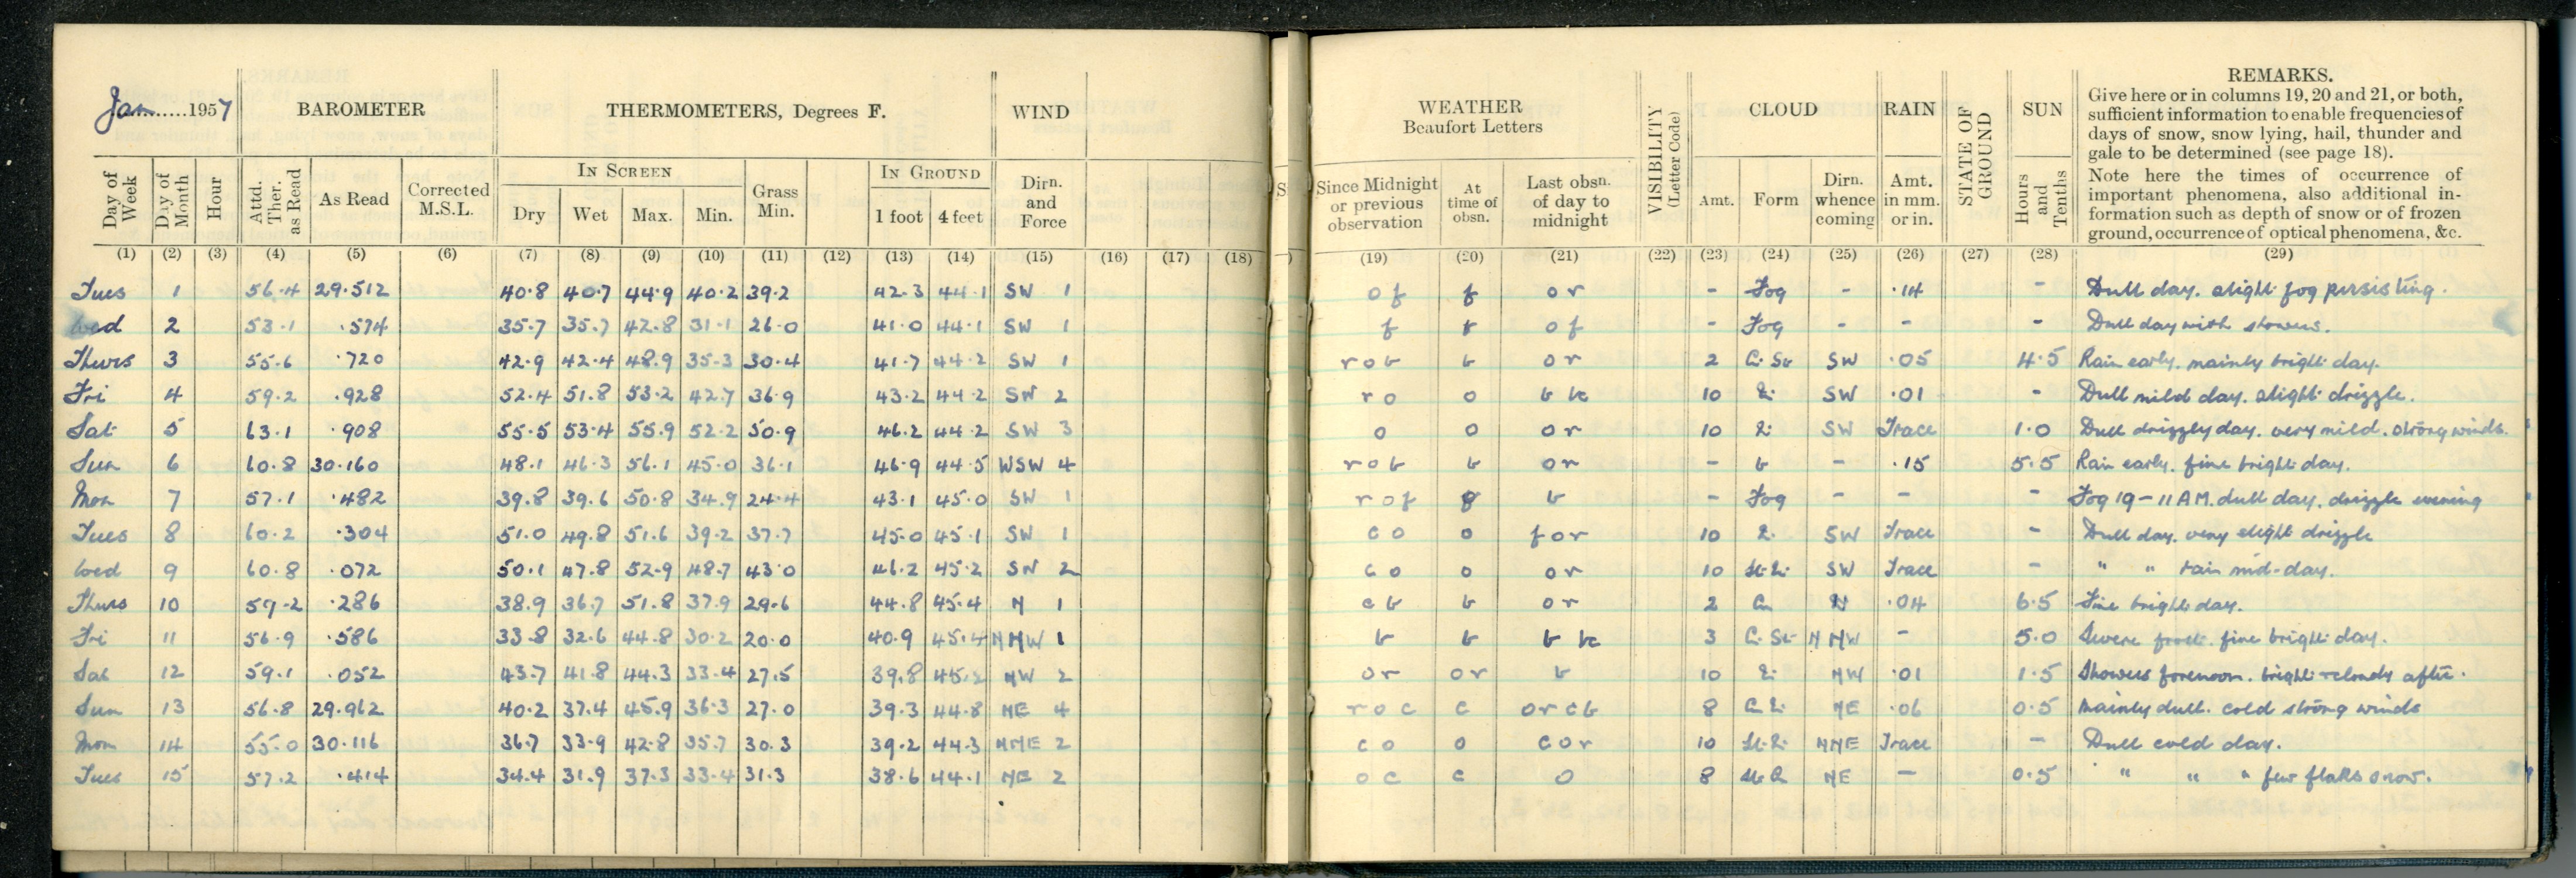 Jan......1957 BAROMETER THERMOMETERS, Degrees F. WIND WEATHER Beaufort Letters VISIBILITY (Letter Code) CLOUD RAIN STATE OF GROUND SUN REMARKS.
Give here or in columns 19, 20 and 21, or both,
sufficient information to enable frequencies of
days of snow, snow lying, hail, thunder and
gale to be determined (see page 18).
Note here the times of occurrence of
important phenomena, also additional in-
formation such as depth of snow or of frozen
ground, occurrence of optical phenomena, &c.
IN SCREEN IN GROUND
Day of Week Day of Month Hour Attd. Ther. as Read As Read Corrected M.S.L. Dry Wet Max. Min. Grass Min. 1 foot 4 feet Dirn. and Force Since Midnight or previous observation At time of obsn. Last obsn. of day to midnight Amt. Form Dirn. whence coming Amt. in mm. or in. Hours and Tenths
(1) (2) (3) (4) (5) (6) (7) (8) (9) (10) (11) (12) (13) (14) (15) (16) (17) (18) (19) (20) (21) (22) (23) (24) (25) (26) (27) (28) (29)
Tues 1 56.4 29.512 40.8 40.7 44.9 40.2 39.2 42.3 44.1 SW 1 of f or - Fog - .14 - Dull day. slight fog persisting.
Wed 2 53.1 .574 35.7 35.7 42.8 31.1 26.0 41.0 44.1 SW 1 f f of - Fog - - - Dull day with showers.
Thurs 3 55.6 .720 42.9 42.4 48.9 35.3 30.4 41.7 44.2 SW 1 rob b or 2 Ci. St SW .05 4.5 Rain early. mainly bright day.
Fri 4 59.2 .928 52.4 51.8 53.2 42.7 36.9 43.2 44.2 SW 2 ro o 10 SW .01 - Dull mild day. slight drizzle.
Sat 5 63.1 .908 55.5 53.4 55.9 52.2 50.9 46.2 44.2 SW 3 o o or 10 SW Trace 1.0 Dull drizzly day. very mild. strong winds.
Sun 6 60.8 30.160 48.1 46.3 56.1 45.0 36.1 46.9 44.5 WSW 4 rob b or - b - .15 5.5 Rain early. fine bright day.
Mon 7 57.1 .482 39.8 39.6 50.8 34.9 24.4 43.1 45.0 SW 1 rof b - Fog - - - Fog 19-11 AM. dull day. drizzle evening
Tues 8 60.2 .304 51.0 49.8 51.6 39.2 37.7 45.0 45.1 SW 1 co o for 10 SW Trace - Dull day. very slight drizzle
Wed 9 60.8 .072 50.1 47.8 52.9 48.7 43.0 46.2 45.2 SW 2 co o or 10 SW Trace - " " rain mid-day.
Thurs 10 59.2 .286 38.9 36.7 51.8 37.9 29.6 44.8 45.4 N 1 cb b or 2 N .04 6.5 Fine bright day.
Fri 11 56.9 .586 33.8 32.6 44.8 30.2 20.0 40.9 45.4 NNW 1 b b 3 Ci. St NNW - 5.0 Severe frost. fine bright day.
Sat 12 59.1 .052 43.7 41.8 44.3 33.4 27.5 39.8 45.2 NW 2 or or b 10 NW .01 1.5 Showers forenoon. bright & cloudy after.
Sun 13 56.8 29.962 40.2 37.4 45.9 36.3 27.0 39.3 44.8 NE 4 roc c orcb 8 NE .06 0.5 Mainly dull. cold strong winds
Mon 14 55.0 30.116 36.7 33.9 42.8 35.7 30.3 39.2 44.3 NNE 2 co o cor 10 NNE Trace - Dull cold day.
Tues 15 57.2 .414 34.4 31.9 37.3 33.4 31.3 38.6 44.1 NE 2 oc c o 8 NE - 0.5 " " " few flakes snow.